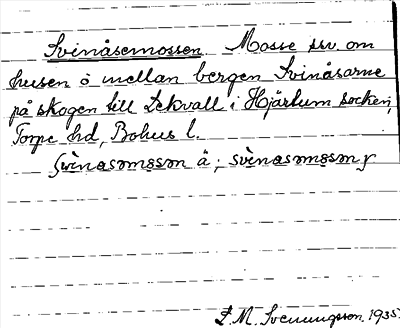 Svinåsemossen Mosse ssv. om
husen o mellan bergen Svinåsarne
på skogen till Lekvall i Hjärtum socken,
Torpe hd, Bohus l.
E. M. Svenungsson. 1935.